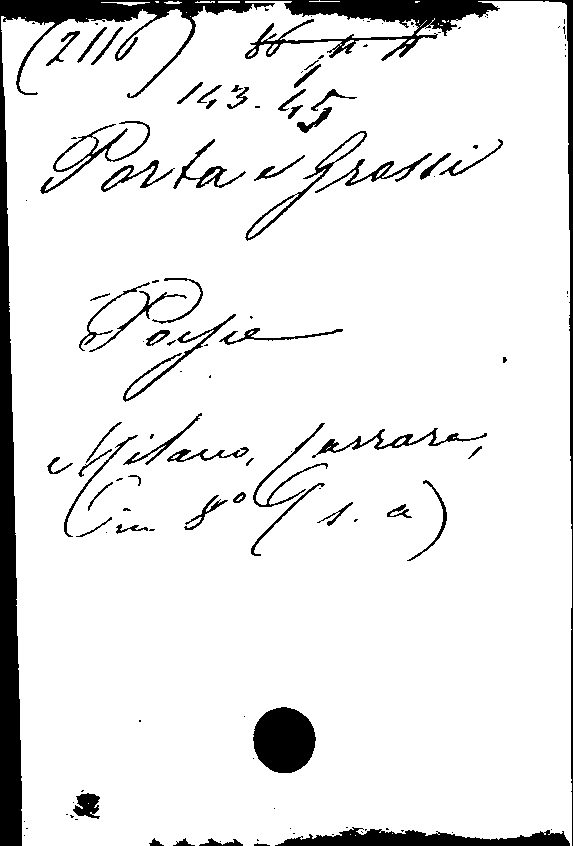 (2116)
143. 45
Porta e Grossi
Poesie
Milano, Carrara,
(in 8° (s. a)